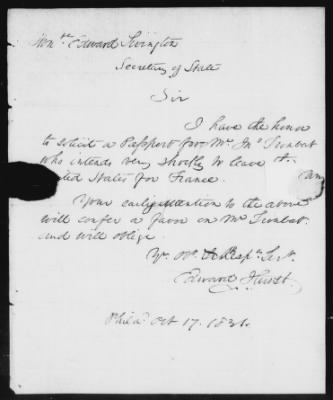 Honble Edward Livingston
Secretary of State
Sir
I have the honor
to solicit a Passport for Mr. Jno
who intends very shortly to leave the
ted States for France.
Your early attention to the above
will confer a favor on Mr
and will oblige
Yr. Obt. & Resp. Servt.
Edward Hurst.
Philada Oct 17. 1831.